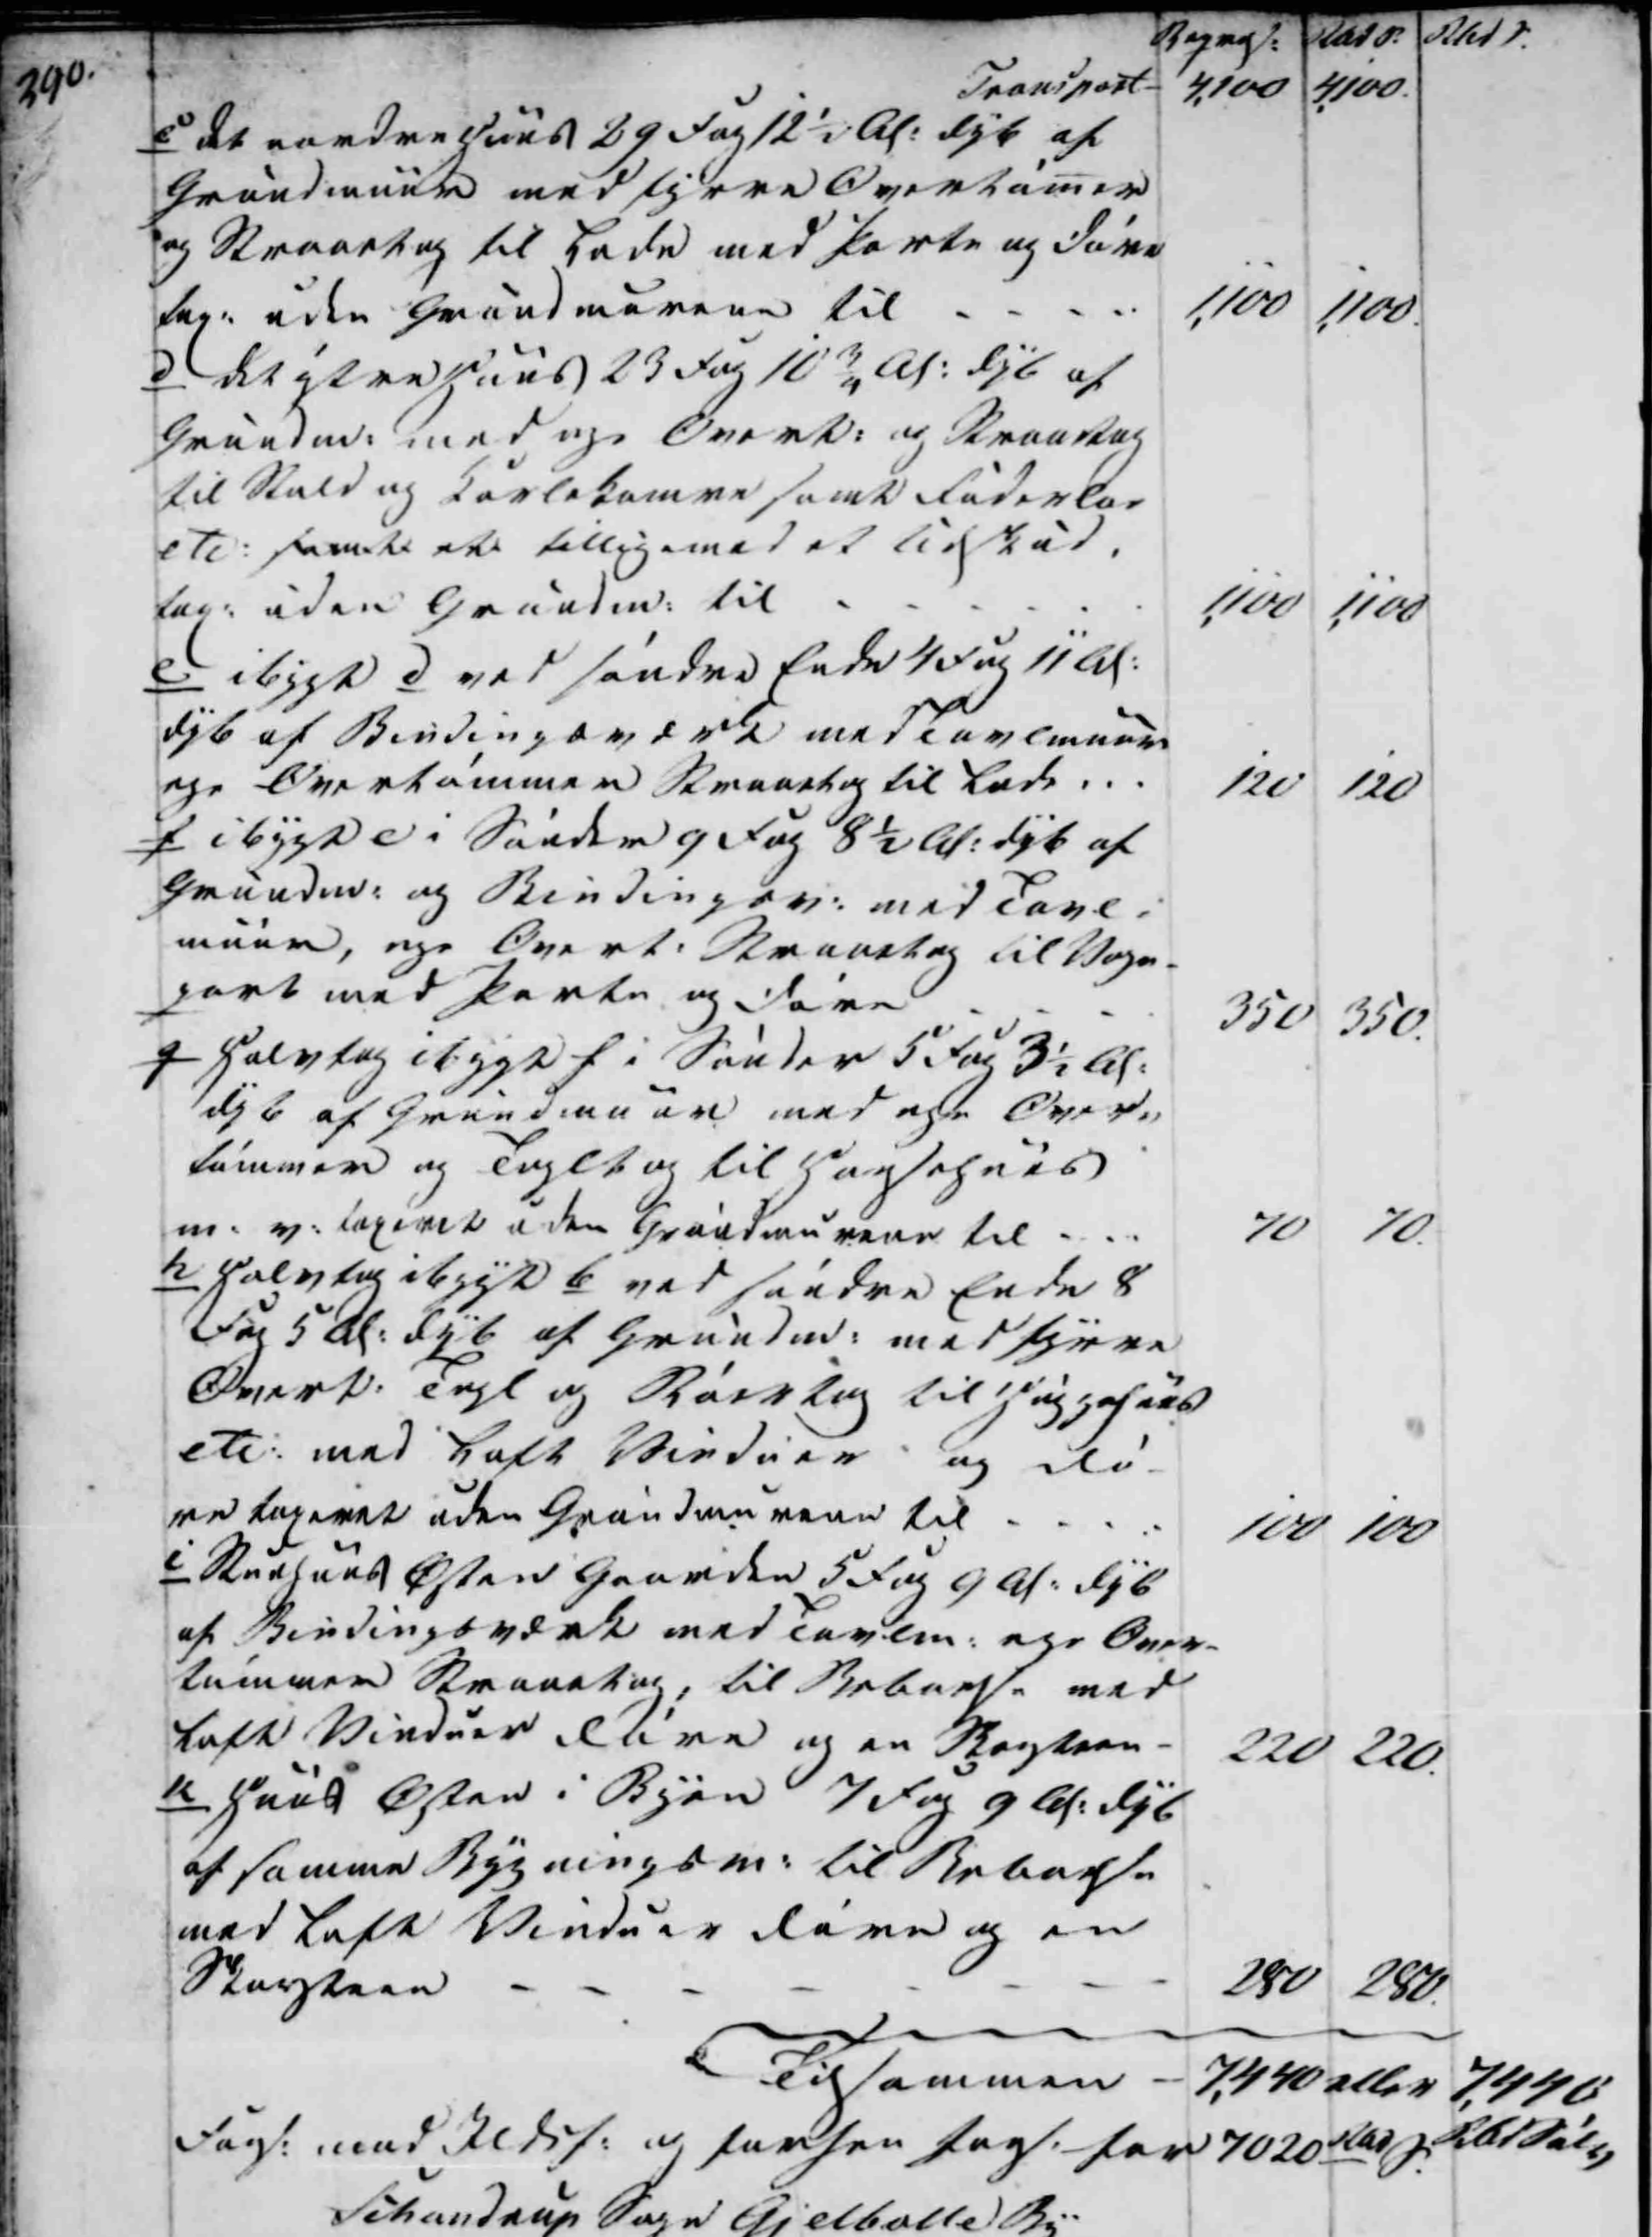 Rbd S. Rbd S.
390.
Transport - 4,100 4,100.
c det nordre Huus 29 Fag 12 1/2 Al: dyb af
Grundmuur med fyrre Overtømer
og Straaetag til Lade med Porte og Døre
tax: uden Grundmurene til - - - - 1,100 1,100.
d det ÿtre Huus 23 Fag 10 3/4 Al: dyb af
Grundm: med ege Overt: og Straaetag
til Stald og Karlekamre samt Foderloe
etc: samt et tilligemed et Udskud,
tax: uden Grundm: til - - - - - 1,100 1,100
e ibygt d ved søndre Ende 4 Fag 11 Al:
dyb af Bindingsværk med Tavlmuur
ege Overtømmer Straaetag til Lade ... 120 120
f ibygt e i Sønder 9 Fag 8 1/2 Al: dyb af
Grundm: og Bindingsv: med Tavl-
muur, ege Overt: Straaetag til Vogn-
port med Porte og Døre - - - - 350 350.
g Halvtag ibygt f i Sønder 5 Fag 3 1/2 Al:
dyb af Grundmuur med ege Over-
tømmer og Tegltag til Hønsehuus
m. v: taxeret uden Grundmurene til - - - 70 70.
h Halvtag ibygt b ved søndre Ende 8
Fag 5 Al: dyb af Grundm: med fyrre
Overt: Tegl og Rørtag til Huggehuus
etc: med Loft Vinduer og Dø-
re taxeret uden Grundmurene til - - - - 100 100
i Stuehuus Østen Gaarden 5 Fag 9 Al: dyb
af Bindingsværk med Tavlm: ege Over-
tømmer Straaetag, til Beboelse med
Loft Vinduer Døre og en Skorsteen - 220 220.
k Huus Østen i Byen 7 Fag 9 Al: dyb
af samme Bygningsm: til Beboelse
med Loft Vinduer Døre og en
Skorsteen - - - - - - - - 280 280.
Tilsammen - 7,440 eller 7,440
Fags: med Ildst: og forhen fors: for 7020 Rbd S. Rbd Sølv
Schandrup Sogn Gjelballe By